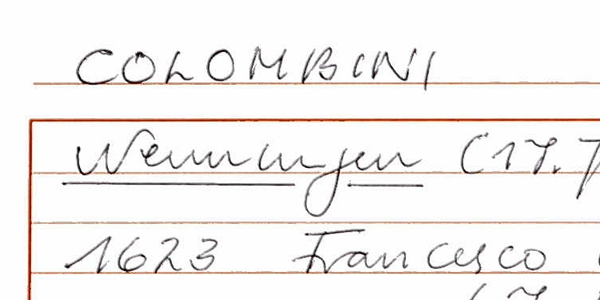 COLOMBINI
Wemmingen (17.
1623 Francesco